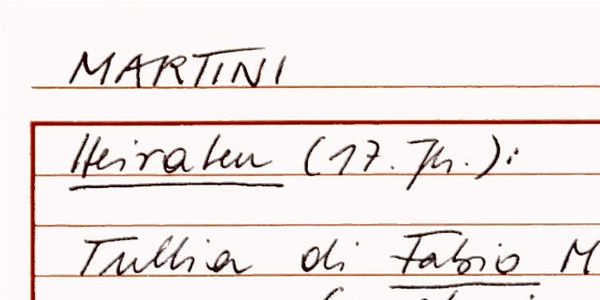 MARTINI
Heiraten (17. Jh.):
Tullia di Fabio M